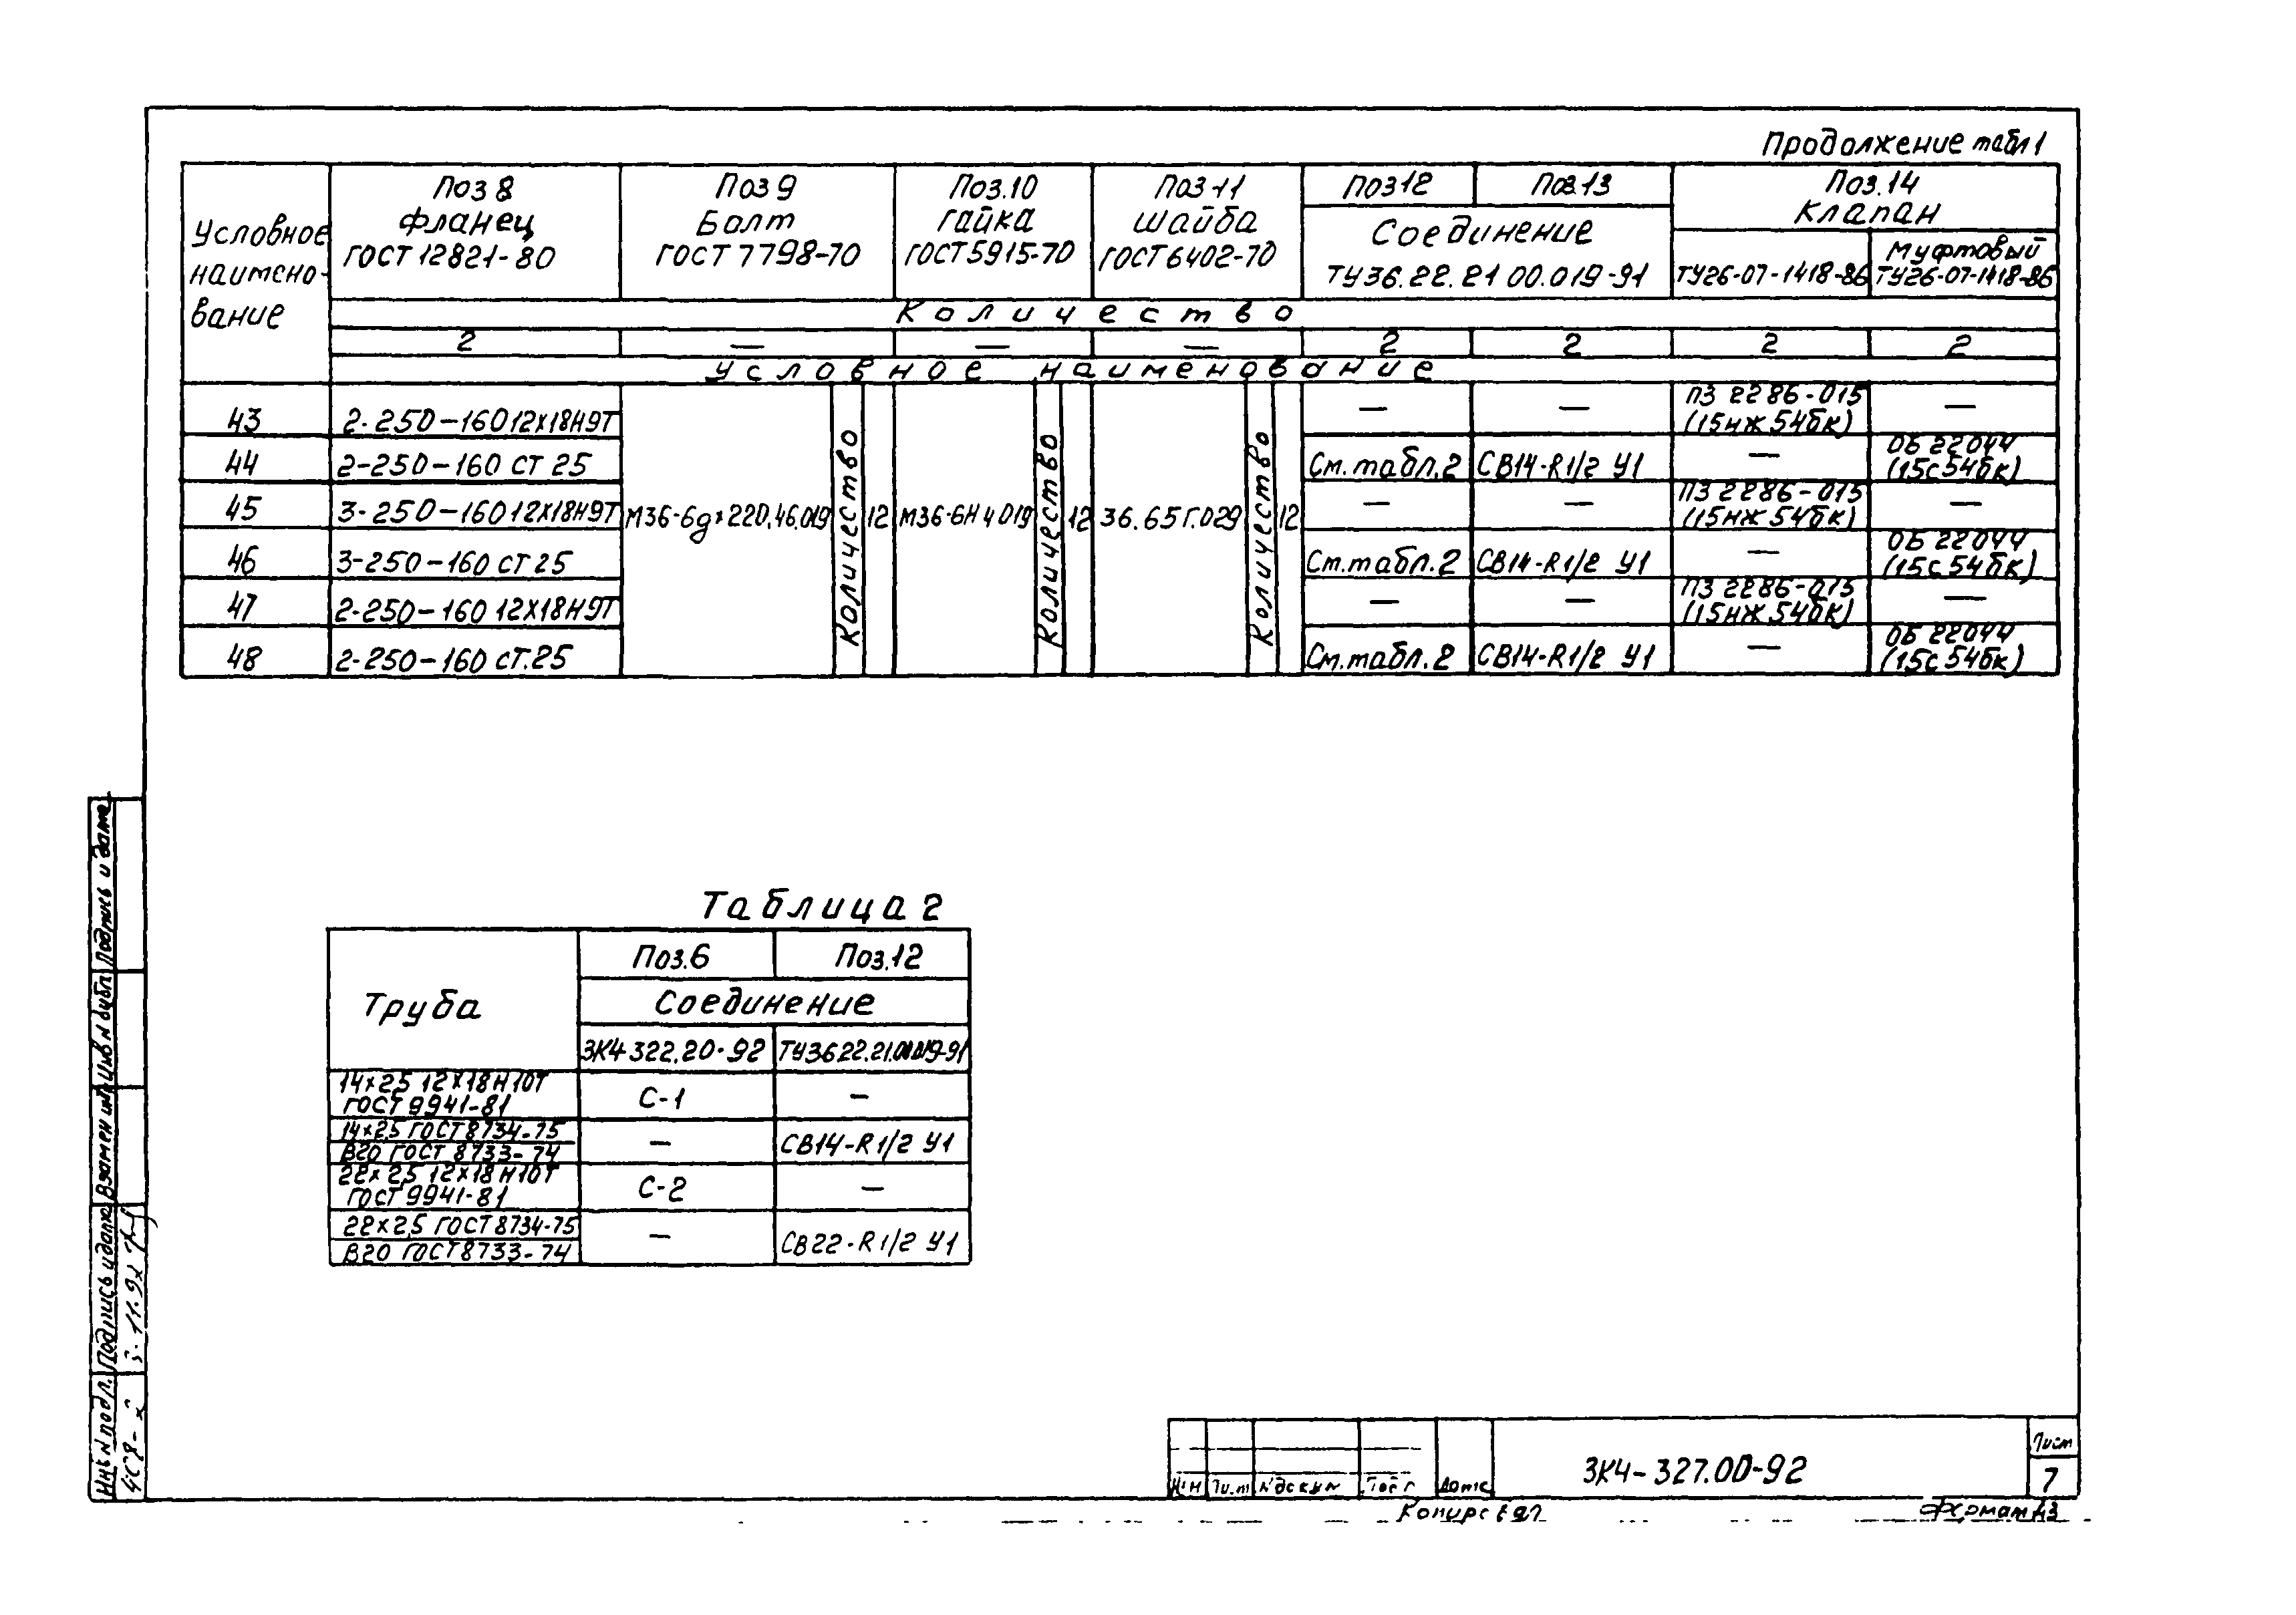 Продолжение табл 1
Условное наимено-вание
Поз 8
Фланец
ГОСТ 12821-80
Поз 9
Болт
ГОСТ 7798-70
Поз.10
Гайка
ГОСТ 5915-70
Поз 11
Шайба
ГОСТ 6402-70
Поз 12
Поз.13
Соединение
ТУ36.22.21 00.019-91
Поз.14
Клапан
ТУ26-07-1418-86
Муфтовый
ТУ26-07-1418-86
Количество
2 — — — 2 2 2 2
Условное наименование
43 2-250-160 12Х18Н9Т — — ПЗ 2286-015 (15нж 54бк) —
44 2-250-160 СТ 25 См.табл.2 СВ14-R1/2 У1 — ОБ 22044 (15с 54бк)
45 3-250-160 12Х18Н9Т — — ПЗ 2286-015 (15нж 54бк) —
46 3-250-160 СТ 25 См.табл.2 СВ14-R1/2 У1 — ОБ 22044 (15с 54бк)
47 2-250-160 12Х18Н9Т — — ПЗ 2286-015 (15нж 54бк) —
48 2-250-160 СТ.25 См.табл.2 СВ14-R1/2 У1 — ОБ 22044 (15с 54бк)
М36-6g×220.46.019
Количество
12
М36-6Н 4 019
Количество
12
36.65Г.029
Количество
12
Таблица 2
Труба
Поз.6
Поз.12
Соединение
ЗК4 322.20-92
ТУ36 22.21.00.019-91
14×2,5 12Х18Н10Т
ГОСТ 9941-81
С-1
—
14×2,5 ГОСТ 8734-75
В20 ГОСТ 8733-74
—
СВ14-R1/2 У1
22×2,5 12Х18Н10Т
ГОСТ 9941-81
С-2
—
22×2,5 ГОСТ 8734-75
В20 ГОСТ 8733-74
—
СВ22-R1/2 У1
Подпись и дата
Инв N дубл.
Взамен инв
Подпись и дата
Инв N подл.
Дата
ЗК4-327.00-92
Лист
7
Копировал
Формат А3